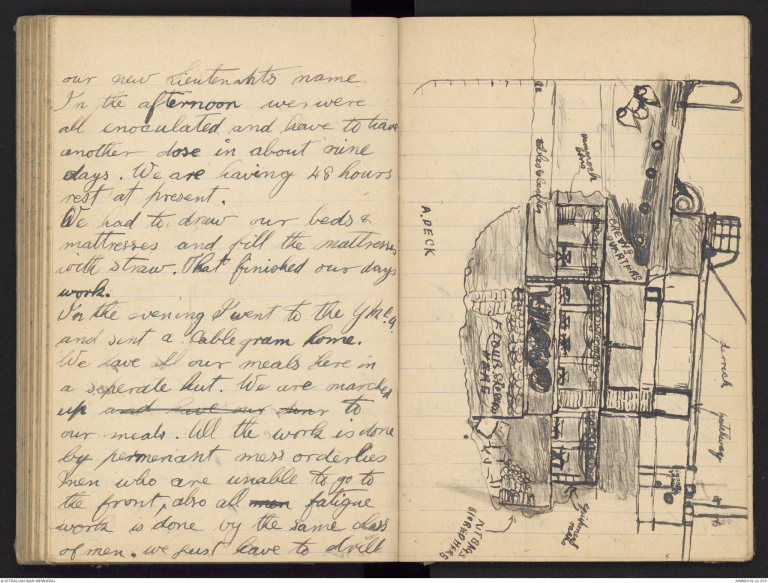 our new Lieutenahts name
I'n the afternoon we were
all inoculated and have to have
another dose in about nine
days. We are having 48 hours
rest at present.
We had to draw our beds &
mattresses and fill the mattresses
with straw. That finished our days
work.
I'n the evening I went to the
and sent a Cable gram home.
We have all our meals here in
a seperate hut. We are marched
up and have our to
our meals. All the work is done
by permeriant mess orderlies
men who are unable to go to
the front, also all men fatigue
work is done by the same class
of men. we just have to drill
A. DECK
Hammock
CREW'S
QUARTERS
FLOUR STORED
HERE
derrick
hatchway
AUSTRALIAN WAR MEMORIAL